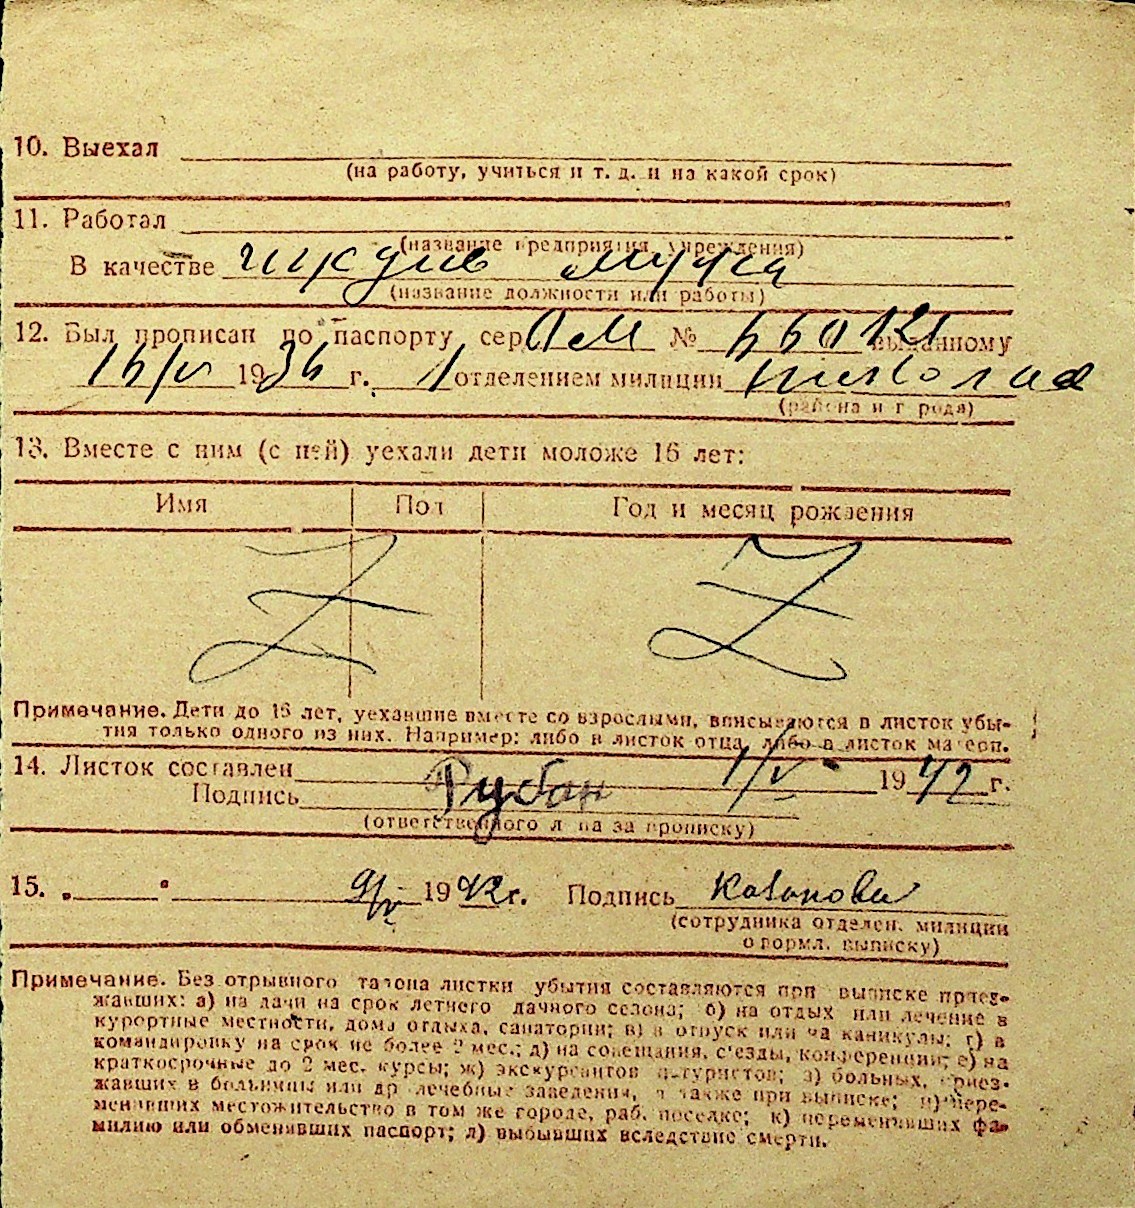 10. Выехал
(на работу, учиться и т. д. и на какой срок)
11. Работал
(название предприятия, учреждения)
В качестве иждив мужа
(название должности или работы)
12. Был прописан по паспорту сер № выданному
1936 г. 1 отделением милиции
(района и города)
13. Вместе с ним (с ней) уехали дети моложе 16 лет:
Имя Пол Год и месяц рождения
Z Z
Примечание. Дети до 16 лет, уехавшие вместе со взрослыми, вписываются в листок убы-
тия только одного из них. Например: либо в листок отца, либо в листок матери.
14. Листок составлен 1/V 1942 г.
Подпись Рубан
(ответственного лица за прописку)
15. „ “ 9/V 1942 г. Подпись Казакова
(сотрудника отделен. милиции
оформл. выписку)
Примечание. Без отрывного талона листки убытия составляются при выписке приез-
жавших: а) на дачи на срок летнего дачного сезона; б) на отдых или лечение в
курортные местности, дома отдыха, санатории; в) в отпуск или на каникулы; г) в
командировку на срок не более 2 мес.; д) на совещания, съезды, конференции; е) на
краткосрочные до 2 мес. курсы; ж) экскурсантов и туристов; з) больных, приез-
жавших в больницы или др лечебные заведения, а также при выписке; и) пере-
менивших местожительство в том же городе, раб. поселке; к) переменивших фа-
милию или обменявших паспорт; л) выбывших вследствие смерти.